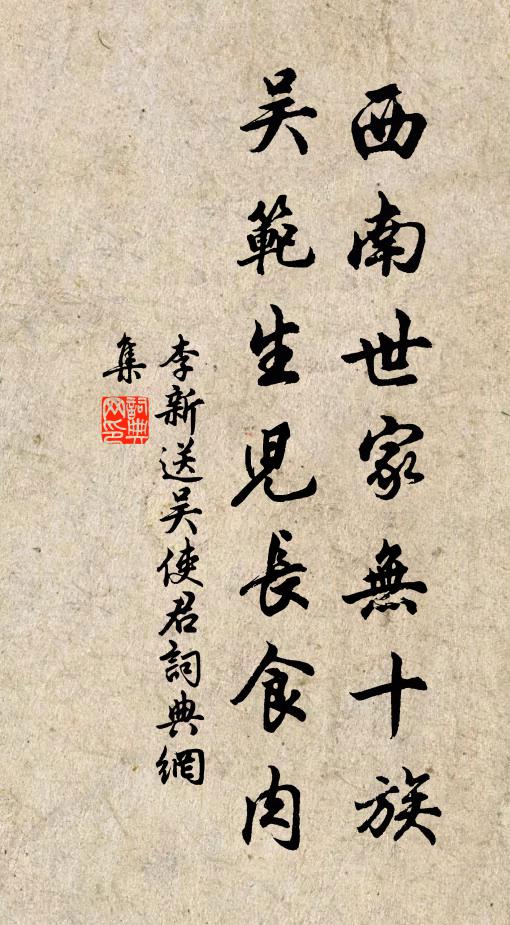 西南世家無十族
吴範生児長食肉
李新送吴使君詞典網
集
詞典
网印